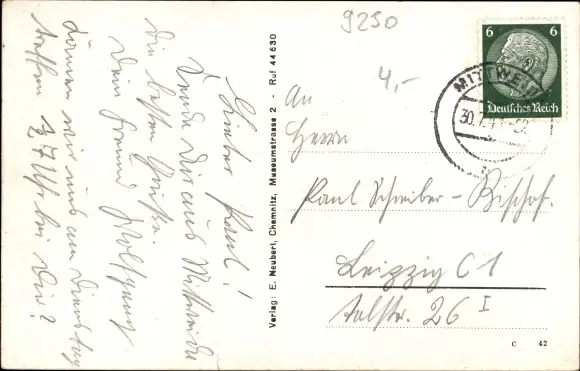 Lieber Paul!
Sende Dir aus Mittweida
die besten Grüße.
Dein Freund Wolfgang
Können wir uns am Dienstag
treffen ½ 7 Uhr bei Dir?
Verlag: E. Neubert, Chemnitz, Museumstrasse 2 - Ruf 44630
9250
4,-
6 6
Deutsches Reich
MITTWEI
30.7.4
An
Herrn
Paul Schreiber-Bischof.
Leipzig C 1
Talstr. 26 I
C 42